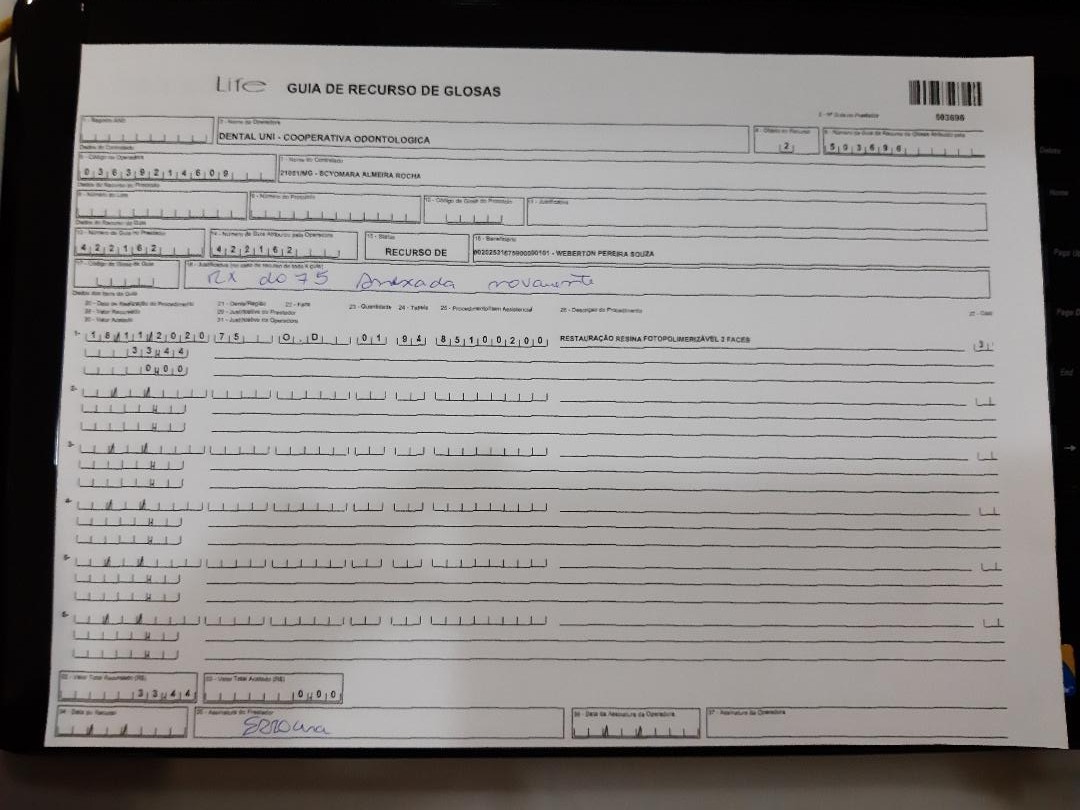 Life GUIA DE RECURSO DE GLOSAS
2 - Nº Guia no Prestador
503696
1 - Registro ANS
3 - Nome da Operadora
DENTAL UNI - COOPERATIVA ODONTOLOGICA
4 - Objeto do Recurso
2
503696
Dados do Contratado
6 - Código na Operadora
03639214609
7 - Nome do Contratado
21051/MG - ECYOMARA ALMEIRA ROCHA
Dados do Recurso do Protocolo
8 - Número do Lote
9 - Número do Protocolo
10 - Código da Glosa do Protocolo
11 - Justificativa
Dados do Recurso da Guia
13 - Número da Guia no Prestador
422162
14 - Número da Guia Atribuído pela Operadora
422162
15 - Status
RECURSO DE
16 - Beneficiário
WEBERTON PEREIRA SOUZA
17 - Código da Glosa da Guia
RX do 75 Anexada novamente
Dados dos Itens da Guia
20 - Data de Realização do Procedimento 21 - Dente/Região 22 - Face 23 - Quantidade 24 - Tabela 25 - Procedimento/Item Assistencial 26 - Descrição do Procedimento
28 - Valor Recursado 29 - Justificativa do Prestador
30 - Valor Acatado 31 - Justificativa da Operadora
1- 18/11/2020 75 O,D 01 94 85100200 RESTAURAÇÃO RESINA FOTOPOLIMERIZÁVEL 2 FACES 3
33,44
0,00
2-
3-
4-
5-
6-
32 - Valor Total Recursado (R$)
33,44
33 - Valor Total Acatado (R$)
0,00
34 - Data do Recurso
35 - Assinatura do Prestador
36 - Data da Assinatura da Operadora
37 - Assinatura da Operadora